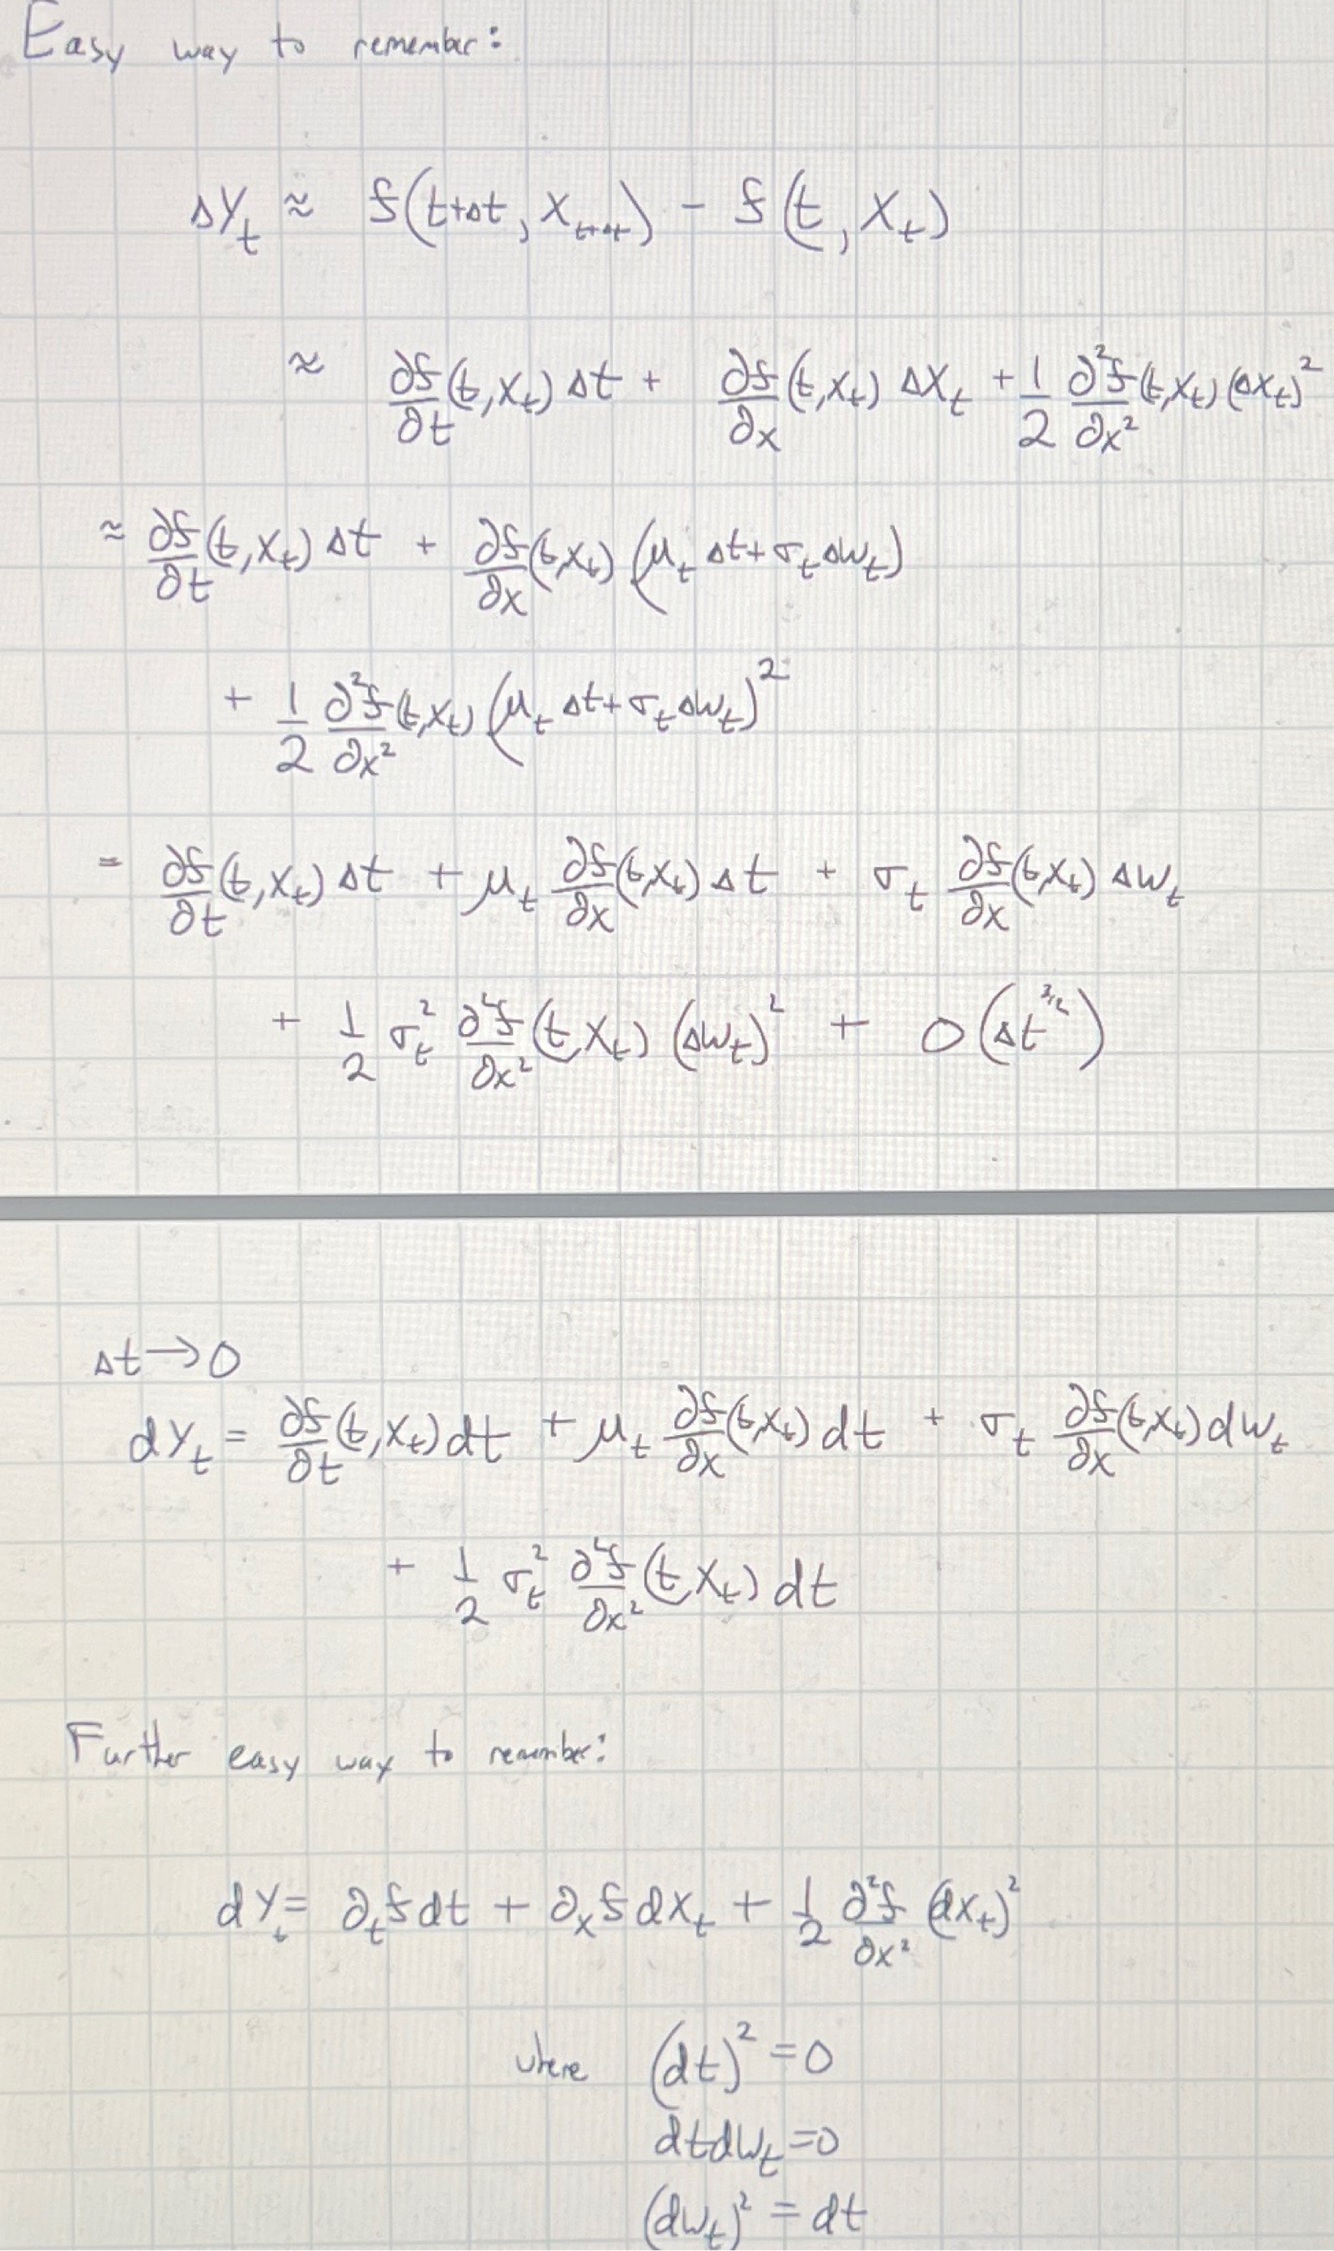 Easy way to remember:
ΔY_t ≈ f(t+Δt, X_{t+Δt}) - f(t, X_t)
≈ ∂f/∂t (t,X_t) Δt + ∂f/∂x (t,X_t) ΔX_t + 1/2 ∂²f/∂x² (t,X_t) (ΔX_t)²
≈ ∂f/∂t (t,X_t) Δt + ∂f/∂x (t,X_t) (μ_t Δt + σ_t ΔW_t)
+ 1/2 ∂²f/∂x² (t,X_t) (μ_t Δt + σ_t ΔW_t)²
= ∂f/∂t (t,X_t) Δt + μ_t ∂f/∂x (t,X_t) Δt + σ_t ∂f/∂x (t,X_t) ΔW_t
+ 1/2 σ_t² ∂²f/∂x² (t,X_t) (ΔW_t)² + O(Δt^{3/2})
Δt → 0
dY_t = ∂f/∂t (t,X_t) dt + μ_t ∂f/∂x (t,X_t) dt + σ_t ∂f/∂x (t,X_t) dW_t
+ 1/2 σ_t² ∂²f/∂x² (t,X_t) dt
Further easy way to remember:
dY_t = ∂_t f dt + ∂_x f dX_t + 1/2 ∂²f/∂x² (dX_t)²
where (dt)² = 0
dt dW_t = 0
(dW_t)² = dt